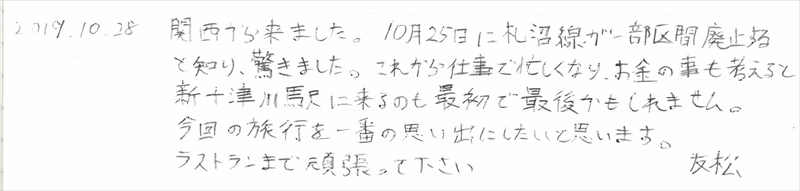 2019.10.28 関西から来ました。10月25日に札沼線が一部区間廃止する
と知り、驚きました。これから仕事で忙しくなり、お金の事も考えると
新十津川駅に来るのも最初で最後かもしれません。
今回の旅行を一番の思い出にしたいと思います。
ラストランまで頑張って下さい 友松